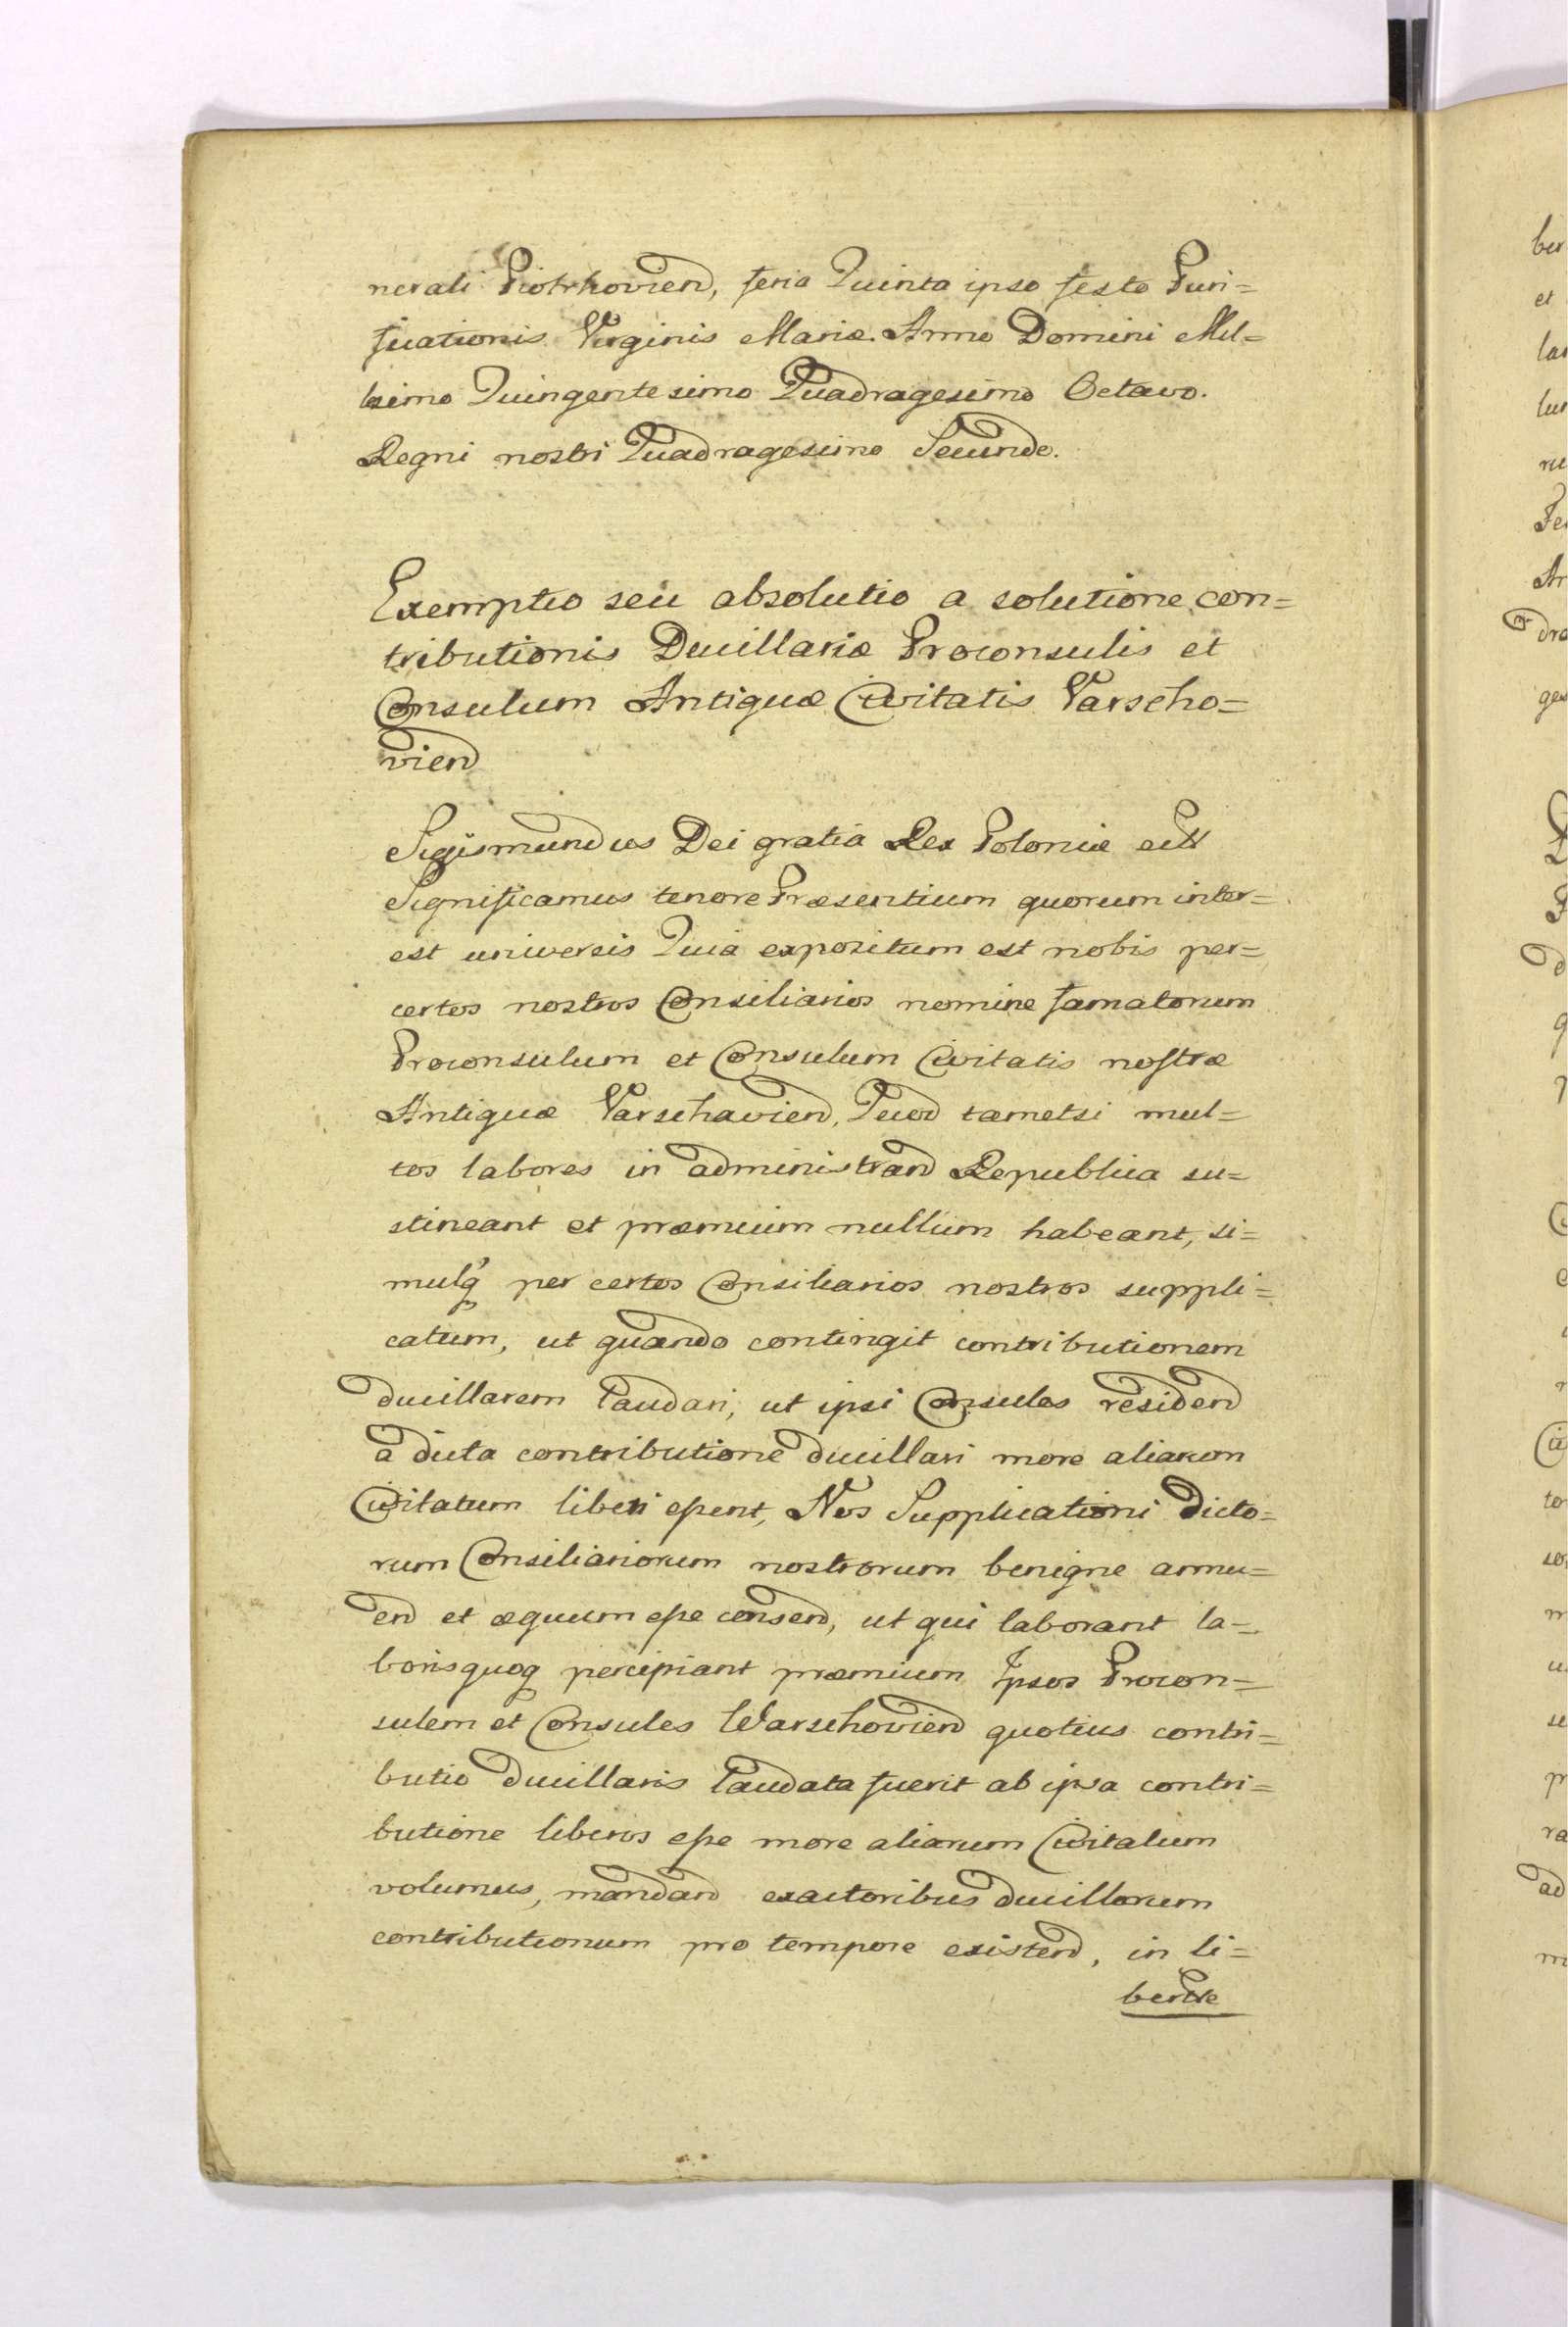 nerali Piotrkovien, feria Quinta ipso festo Puri=
ficationis Virginis Mariæ. Anno Domini Mil=
lesimo Quingentesimo Quadragesimo Octavo.
Regni nostri Quadragesimo Secundo.
Exemptio seu absolutio a solutione con=
tributionis Ducillariæ Proconsulis et
Consulum Antiquæ Civitatis Varscho=
vien
Sigismundus Dei gratia Rex Poloniæ ett
Significamus tenore Præsentium quorum inter=
est universis Quia expositum est nobis per=
certos nostros Consiliarios nomine famatorum
Proconsulum et Consulum Civitatis nostræ
Antiquæ Varschavien, Quod tametsi mul=
tos labores in administrand Republica su=
stineant et præmium nullum habeant, si=
mulq per certos Consiliarios nostros suppli=
catum, ut quando contingit contributionem
ducillarem laudari, ut ipsi Consules residen
a dicta contributione ducillari more aliarum
Civitatum liberi essent, Nos Supplicationi dicto=
rum Consiliariorum nostrorum benigne annu=
en et æquum esse censen, ut qui laborant la=
boris quoq percipiant præmium Ipsos Procon=
sulem et Consules Warschovien quotius contri=
butio ducillaris laudata fuerit ab ipsa contri=
butione liberos esse more aliarum Civitatum
volumus, mandan exactoribus ducillorum
contributionum pro tempore existen, in li=
bertte
ber
et